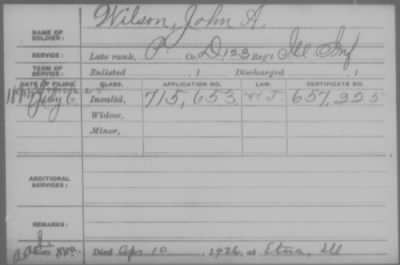 NAME OF SOLDIER: Wilson, John A.
SERVICE: Late rank, P. Co. D, 123 Reg't Ill Inf
TERM OF SERVICE: Enlisted , 1 Discharged , 1
DATE OF FILING. CLASS. APPLICATION NO. LAW. CERTIFICATE NO.
July 6. Invalid, 715,653 657,225
Widow,
Minor,
ADDITIONAL SERVICES:
REMARKS:
Died Apr 10, 1926, at Etna, Ill